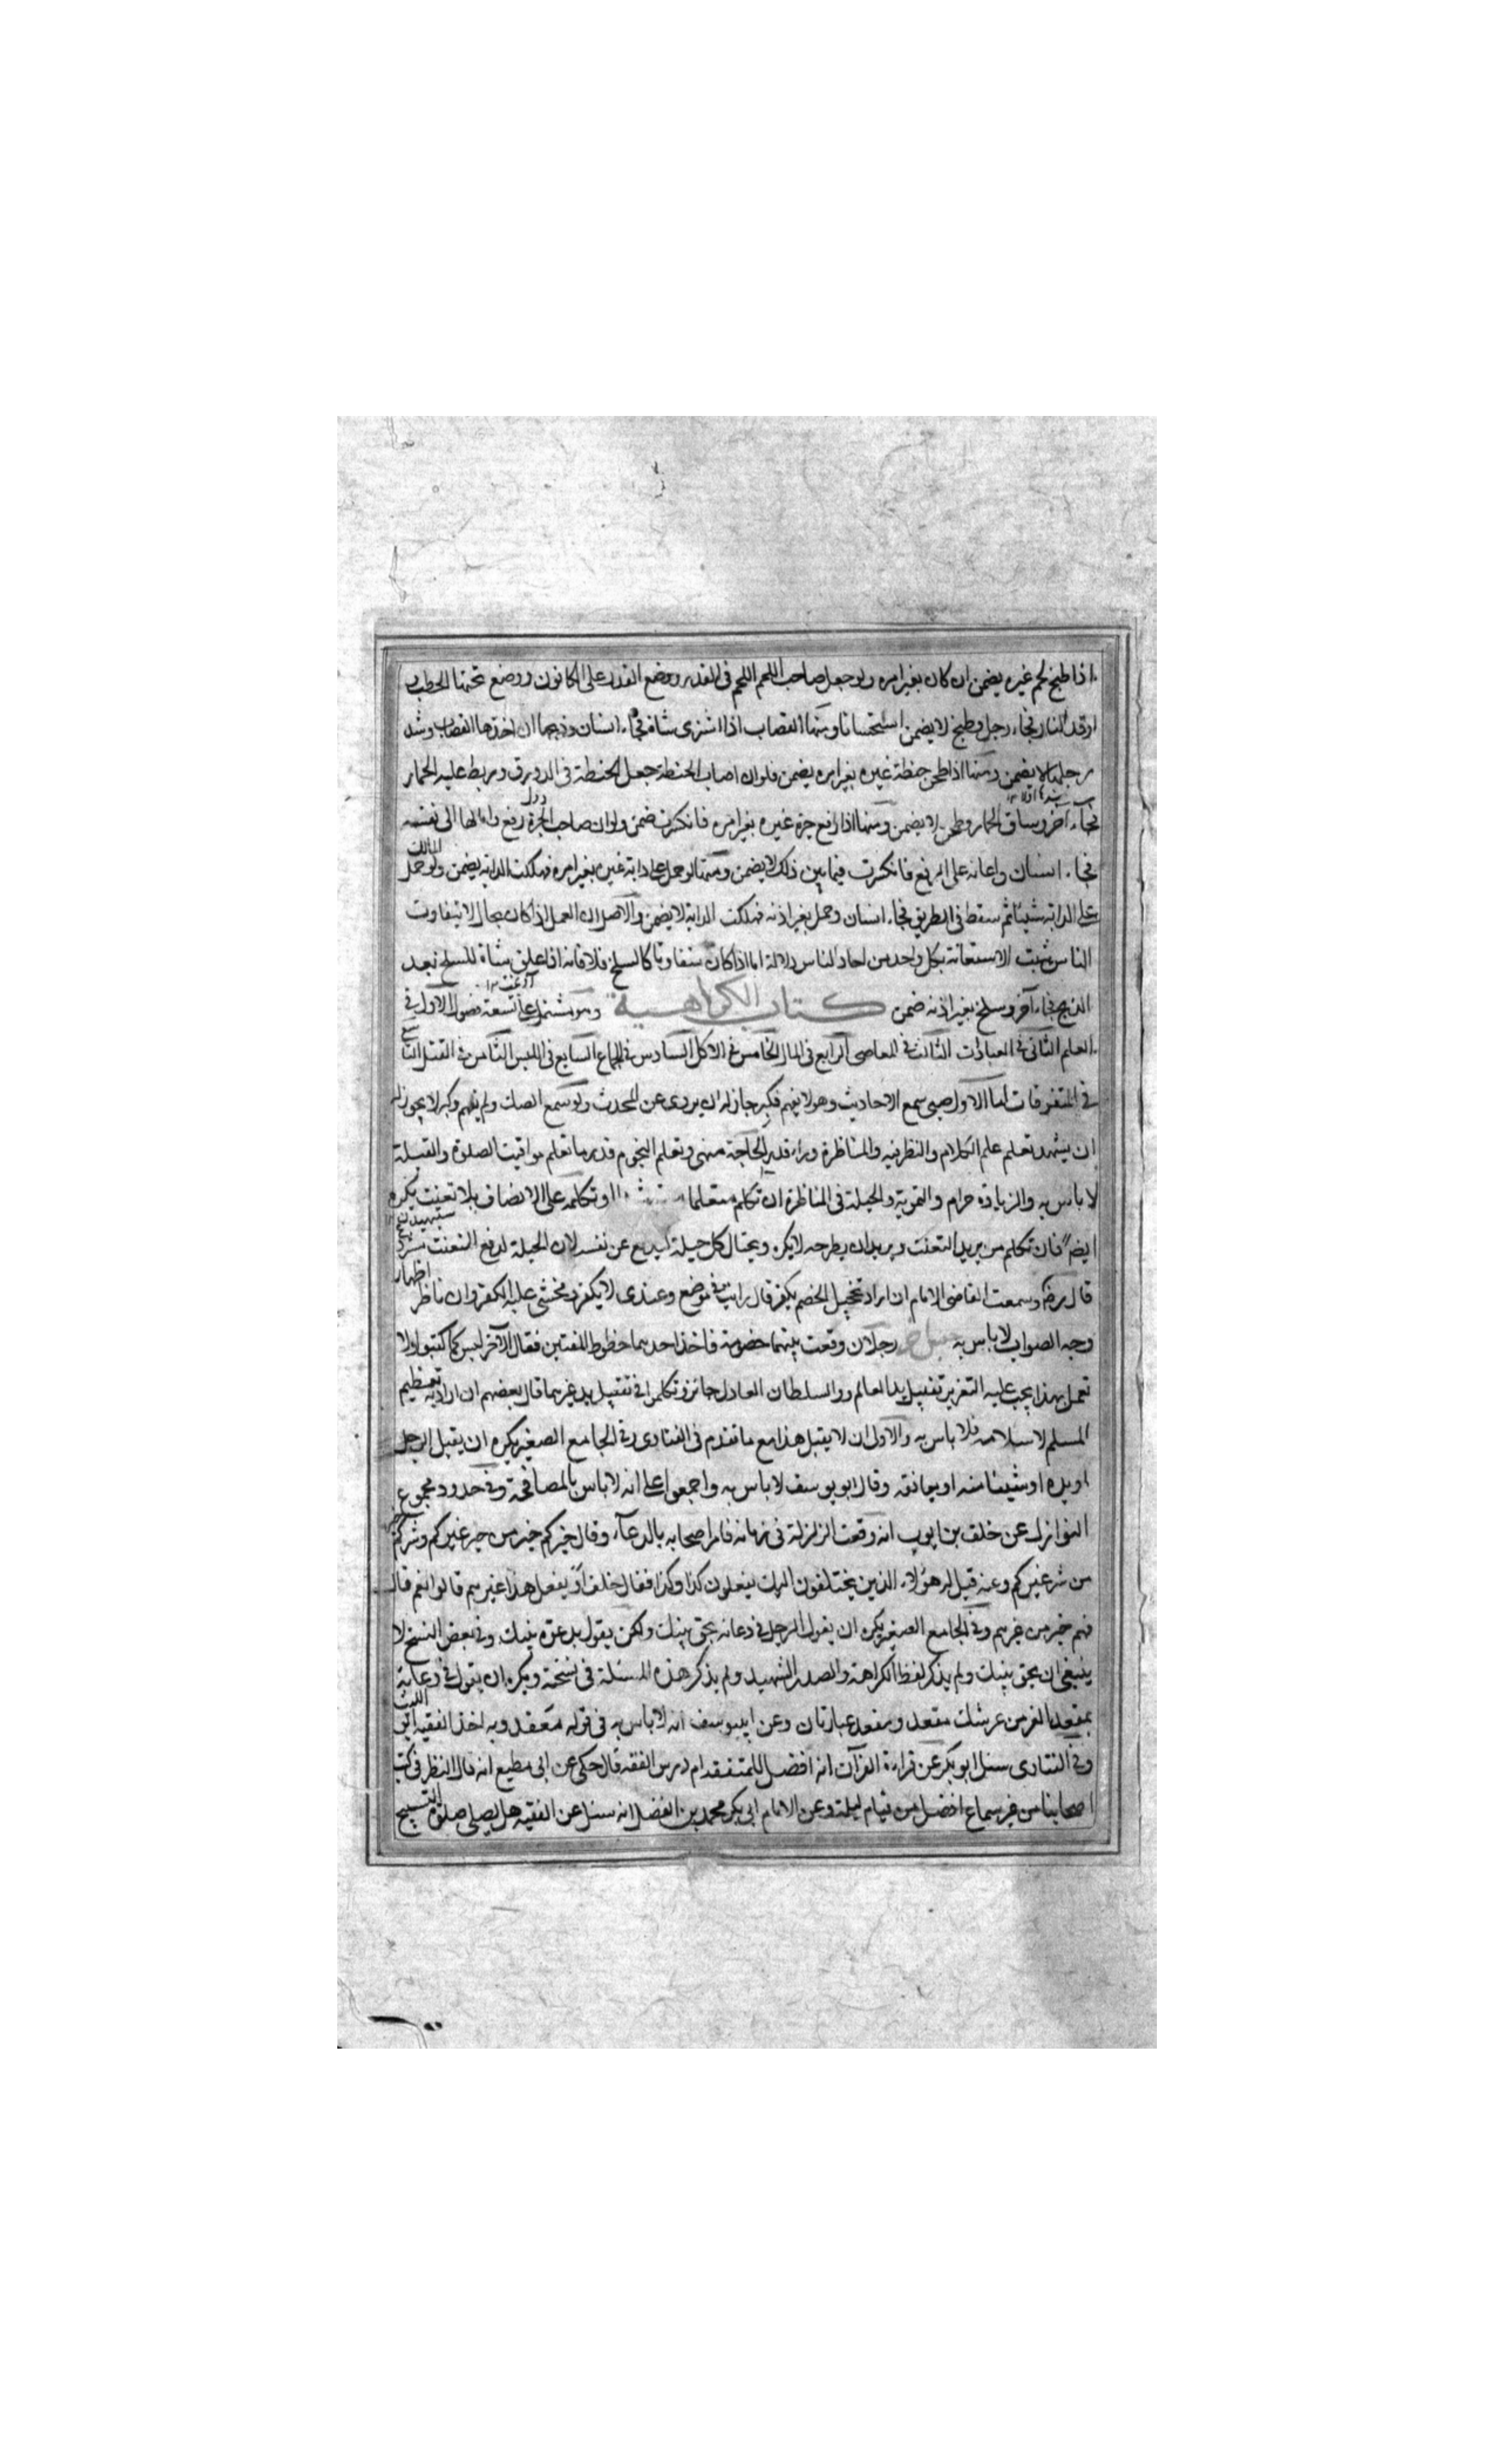 اذا طبخ لحم غيره يضمن ان كان بغير امره ولو جعل صاحب اللحم اللحم فى القدر ووضع القدر على الكانون ووضع تحتها الحطب
اوقد النار فجاء رجل وطبخ لا يضمن استحسانا ومنها القصاب اذا اشترى شاة فجاء انسان وذبحها ان اخذها القصاب وشد
رجلها لا يضمن ومنها اذا طحن حنطة غيره بغير امره يضمن فلو ان اصاب الحنطة جعل الحنطة فى الدورق وربط عليه الحمار
فجاء آخر وساق الحمار وطحن لا يضمن ومنها اذا رفع جرة غيره بغير امره فانكسرت ضمن ولو ان صاحب الجرة رفع وامالها الى نفسه
فجاء انسان واعانه على الرفع فانكسرت فيما بين ذلك لا يضمن ومنها لو حمل على دابة غيره بغير امره فهلكت الدابة يضمن ولو حمل المالك
على الدابة شيئا ثم سقط فى الطريق فجاء انسان وحمل بغير اذنه فهلكت الدابة لا يضمن والاصل ان العمل اذا كان بحال لا يتفاوت
الناس ثبت الاستعانة بكل واحد من احاد الناس دلالة اما اذا كان متفاوتا كالسلخ فلا فانه اذا علق شاة للسلخ بعد
الذبح فجاء آخر وسلخ بغير اذنه ضمن كتاب الكراهية وهو يشتمل على تسعة فصول الاول فى
العلم الثانى فى العبادات الثالث فى المعاصى الرابع فى المال الخامس فى الاكل السادس فى الجماع السابع فى اللبس الثامن فى القتل التاسع
فى المتفرقات اما الاول صبى سمع الاحاديث وهو لا يفهم فكبر جاز له ان يروى عن المحدث ولو سمع الصك ولم يفهم وكبر لا يجوز له
ان يشهد تعلم علم الكلام والنظر فيه والمناظرة وراء قدر الحاجة منهى وتعلم النجوم قدر ما تعلم مواقيت الصلوة والقبلة
لا باس به والزيادة حرام والتمويه والحيلة فى المناظرة ان تكلم متعلما او تكلمه على الانصاف بلا تعنت يكره
ايضا فان تكلم من يريد التعنت ويريد ان يطرحه لا يكره ويحتال كل حيلة ليدفع عن نفسه لان الحيلة لدفع التعنت
قال رضى وسمعت القاضى الامام ان اراد تخجيل الخصم يكفر قال رايت فى موضع وعندى لا يكفر ويخشى عليه الكفر وان ناظر اظهار
وجه الصواب لا باس به رجلان وقعت بينهما خصومة فاخذ احدهما خطوط المفتين فقال الآخر ليس كما كتبوا ولا
تعمل بهذا يجب عليه التعزير تقبيل يد العالم والسلطان العادل جائز وتكلموا فى تقبيل يد غيرهما قال بعضهم ان اراد به تعظيم
المسلم لاسلامه فلا باس به والاول ان لا يقبل هذا مع ما تقدم فى الفتاوى وفى الجامع الصغير يكره ان يقبل الرجل
او يده او شيئا منه او يعانقه وقال ابو يوسف لا باس به واجمعوا على انه لا باس بالمصافحة وفى حدود مجموع
النوازل عن خلف بن ايوب انه وقعت الزلزلة فى زمانه فامر اصحابه بالدعاء وقال خيركم خير من خير غيركم وشركم خير
من شر غيركم وعنه قيل له هؤلاء الذين يختلفون اليك يفعلون كذا وكذا فقال خلف او يفعل هذا غيرهم قالوا نعم قال
فهم خير من غيرهم وفى الجامع الصغير يكره ان يقول الرجل فى دعائه بحق نبيك ولكن يقول بدعوة نبيك وفى بعض النسخ لا
ينبغى ان بحق نبيك ولم يذكر لفظ الكراهة والصدر الشهيد ولم يذكر هذه المسئلة فى نسخته ويكره ان يقول فى دعائه
بمقعد العز من عرشك مقعد ومقعد عبارتان وعن ابى يوسف انه لا باس به فى قوله معقد وبه اخذ الفقيه ابو الليث
وفى الفتاوى سئل ابو بكر عن قراءة القرآن انه افضل للمتفقه ام درس الفقه قال حكى عن ابى مطيع انه قال النظر فى كتب
اصحابنا من غير سماع افضل من قيام ليلة وعن الامام ابى بكر محمد بن الفضل انه سئل عن الفقيه هل يصلى صلوة التسبيح